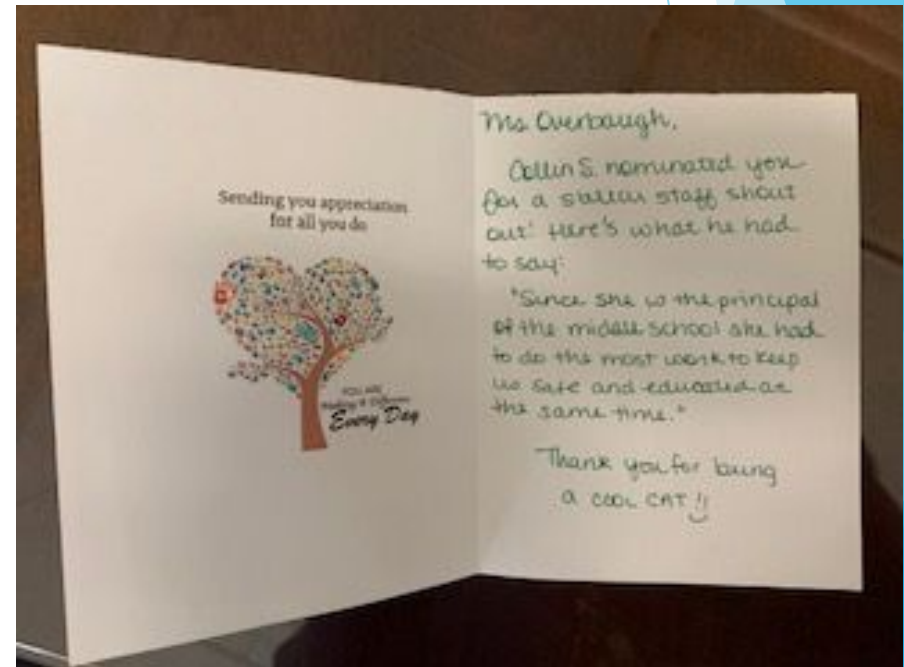 Sending you appreciation
for all you do
YOU ARE
Making A Difference
Every Day
Ms. Overbaugh,
Collin S. nominated you
for a staff shout
out! Here's what he had
to say:
"Since she is the principal
of the middle school she had
to do the most work to keep
us safe and educated at
the same time."
Thank you for being
a COOL CAT!!